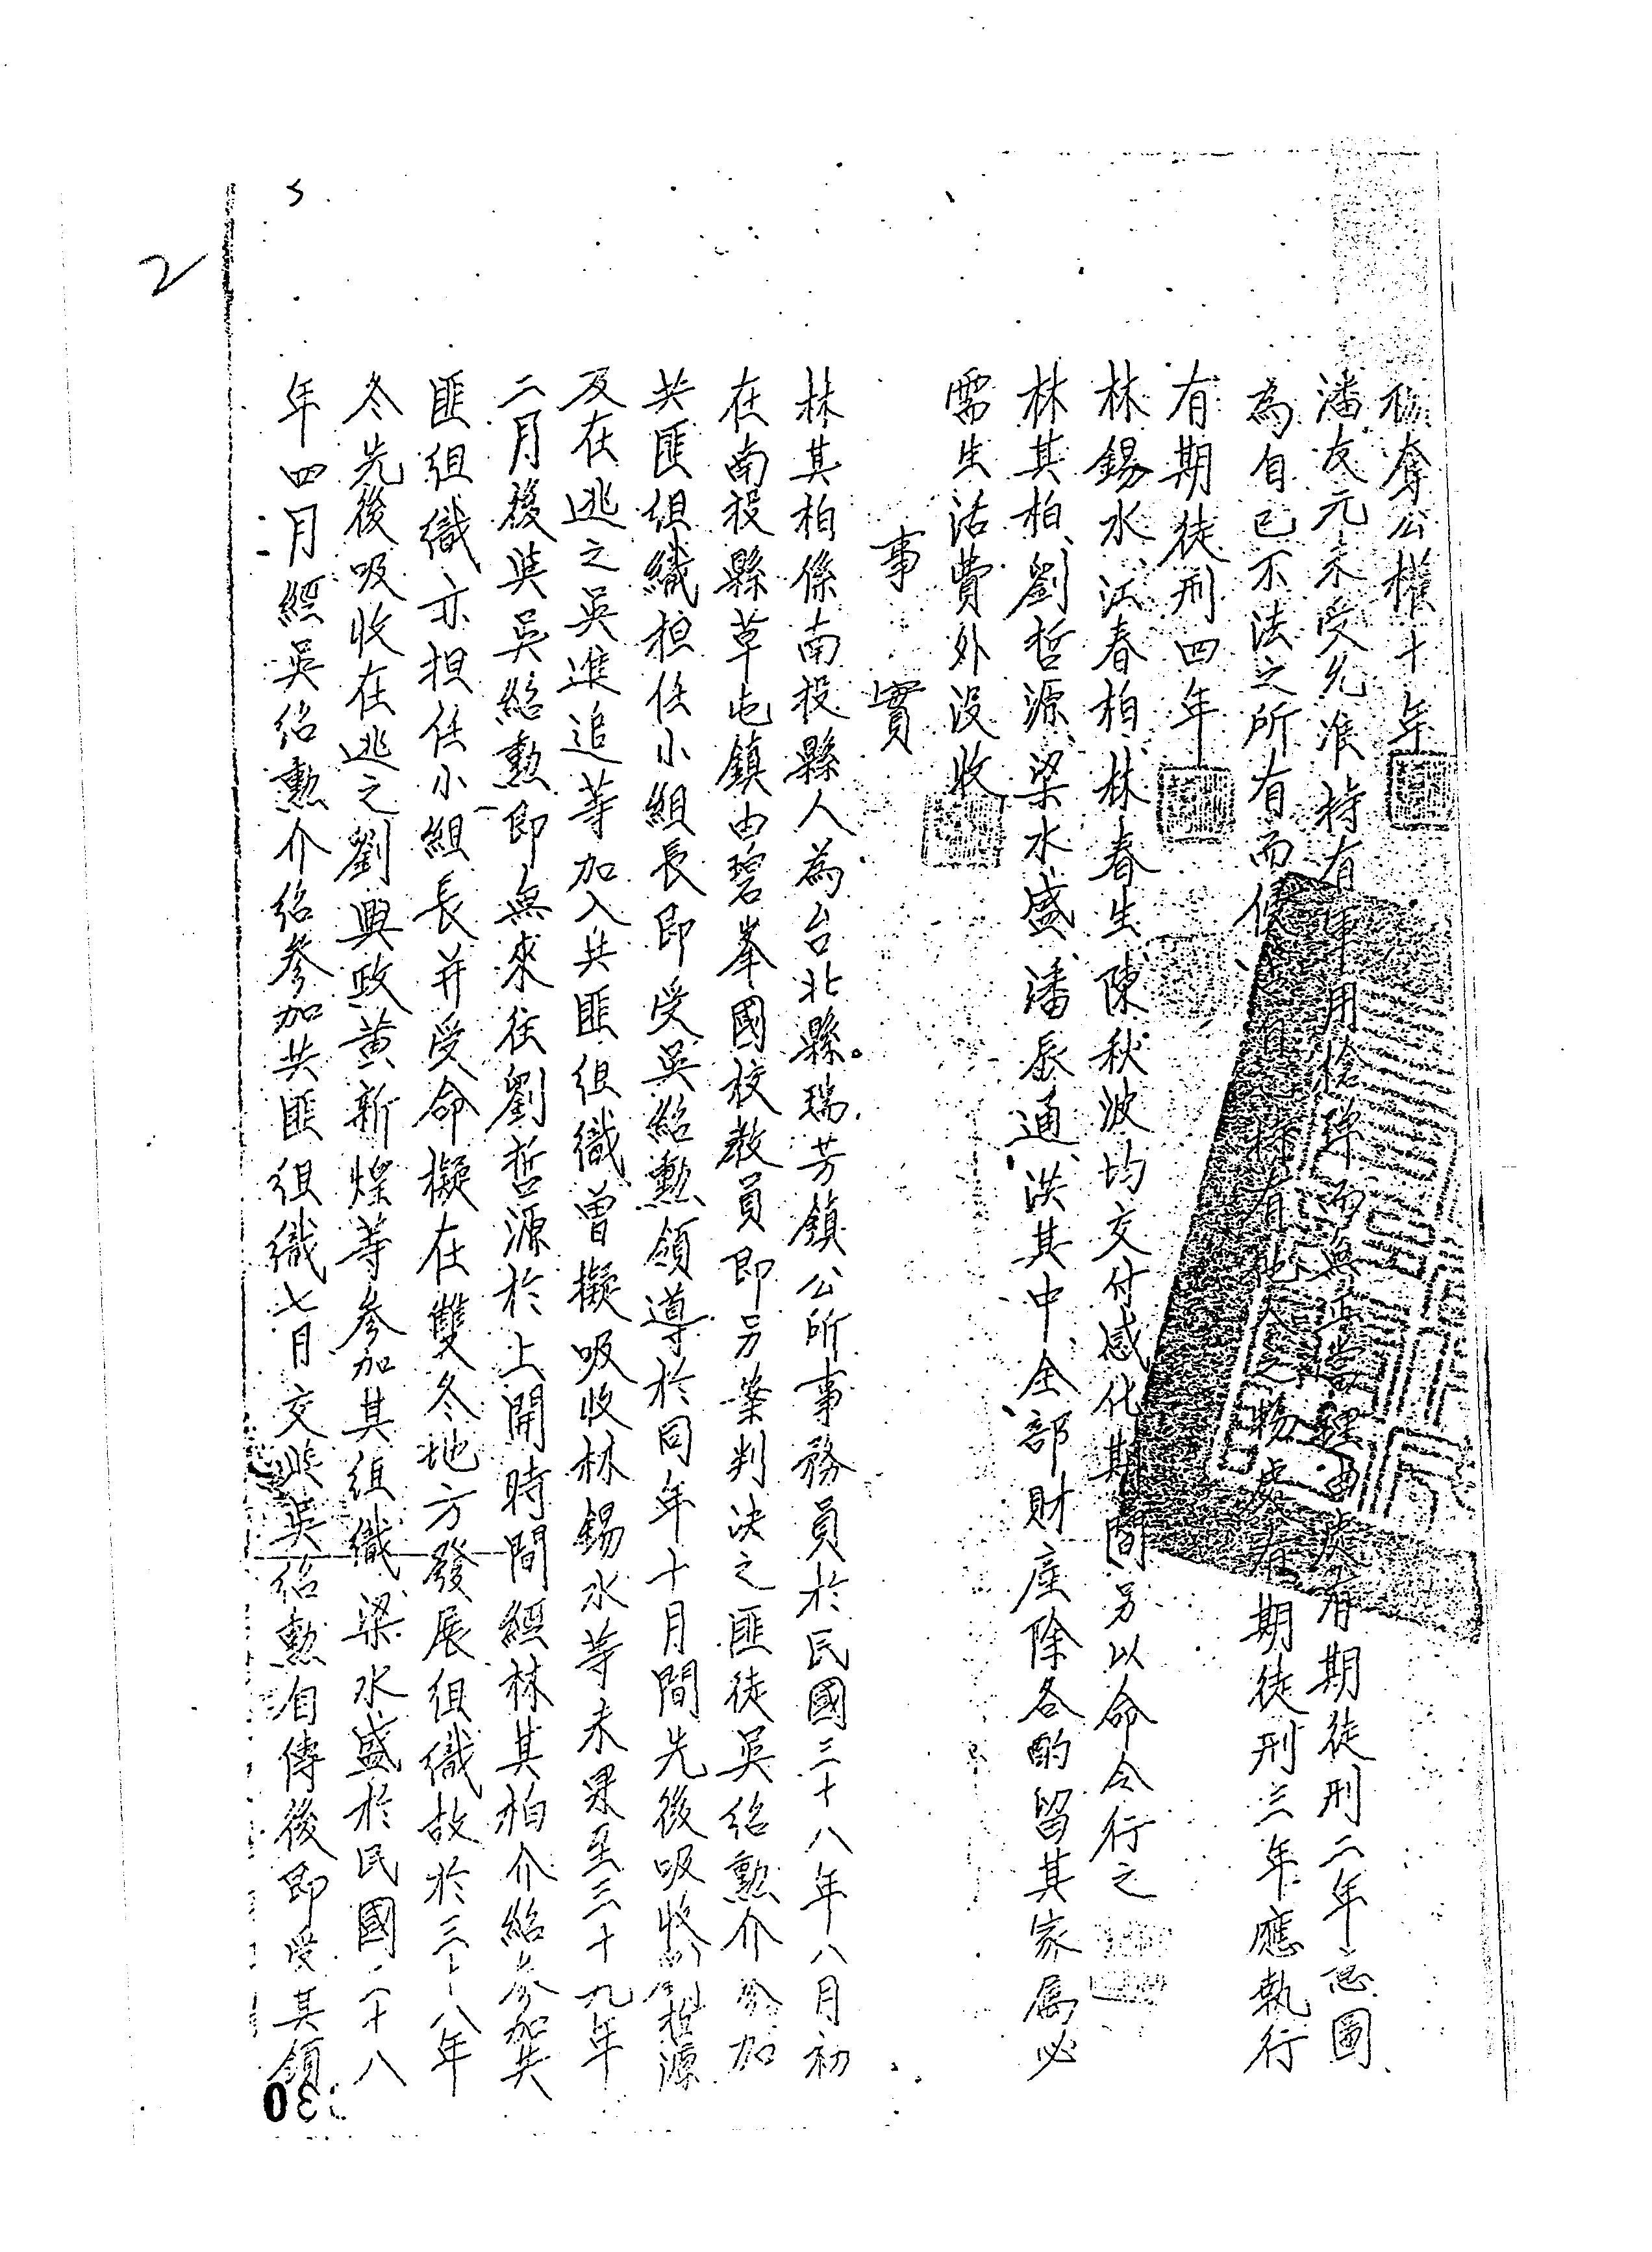 褫奪公權十年
潘友元未受允准持有軍用槍彈而無正當理由處有期徒刑二年意圖
為自己不法之所有而侵占自己持有他人之物處有期徒刑三年應執行
有期徒刑四年
林錫水、江春柏、林春生、陳秋波均交付感化期間另以命令行之
林其柏、劉哲源、梁水盛、潘辰通、洪其中、全部財產除各酌留其家屬必
需生活費外沒收
事實
林其柏係南投縣人為台北縣瑞芳鎮公所事務員於民國三十八年八月初
在南投縣草屯鎮由碧峯國校教員即另案判決之匪徒吳紹勲介參加
共匪組織担任小組長即受吳紹勲領導於同年十月間先後吸收劉哲源
及在逃之吳進追等加入共匪組織曾擬吸收林錫水等未果至三十九年
二月後與吳紹勲即無來往劉哲源於上開時間經林其柏介紹參加共
匪組織亦担任小組長并受命擬在雙冬地方發展組織故於三十八年
冬先後吸收在逃之劉興政黃新煌等參加其組織梁水盛於民國三十八
年四月經吳紹勲介紹參加共匪組織七月交與吳紹勲自傳後即受其領
2
030